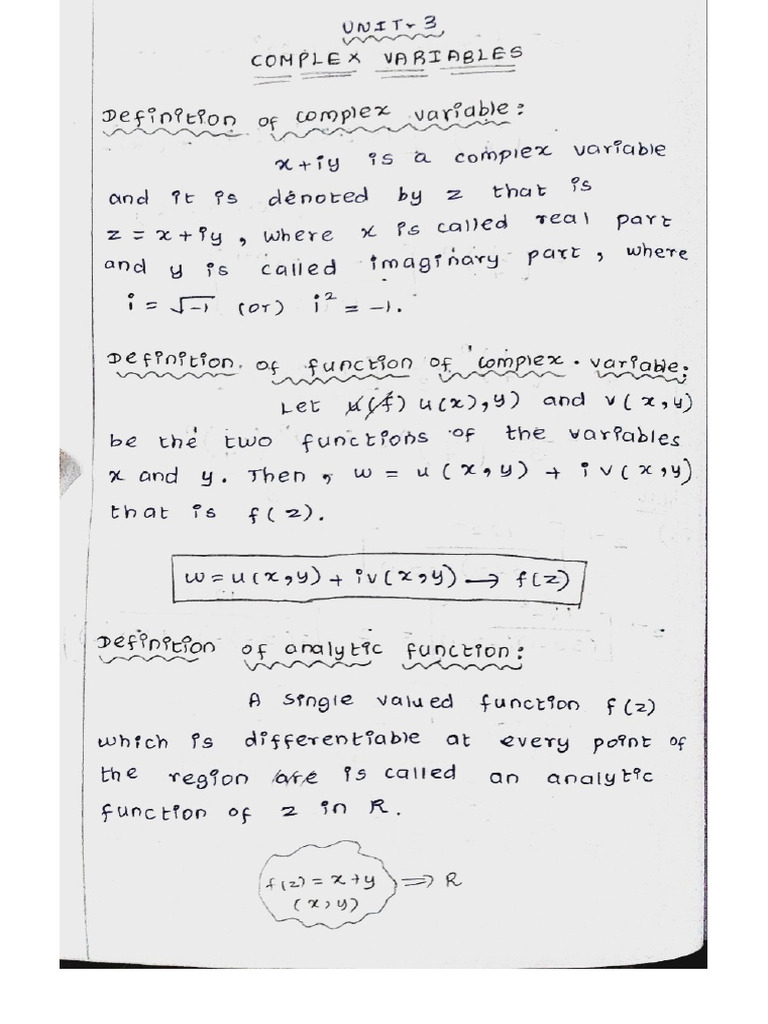 UNIT-3
COMPLEX VARIABLES
Definition of complex variable:
x+iy is a complex variable
and it is denoted by z that is
z = x+iy, where x is called real part
and y is called imaginary part, where
i = √-1 (or) i² = -1.
Definition of function of complex variable:
Let u(x),y) and v(x,y)
be the two functions of the variables
x and y. Then, w = u(x,y) + iv(x,y)
that is f(z).
w = u(x,y) + iv(x,y) → f(z)
Definition of analytic function:
A single valued function f(z)
which is differentiable at every point of
the region is called an analytic
function of z in R.
f(z) = x+y ⇒ R
(x,y)